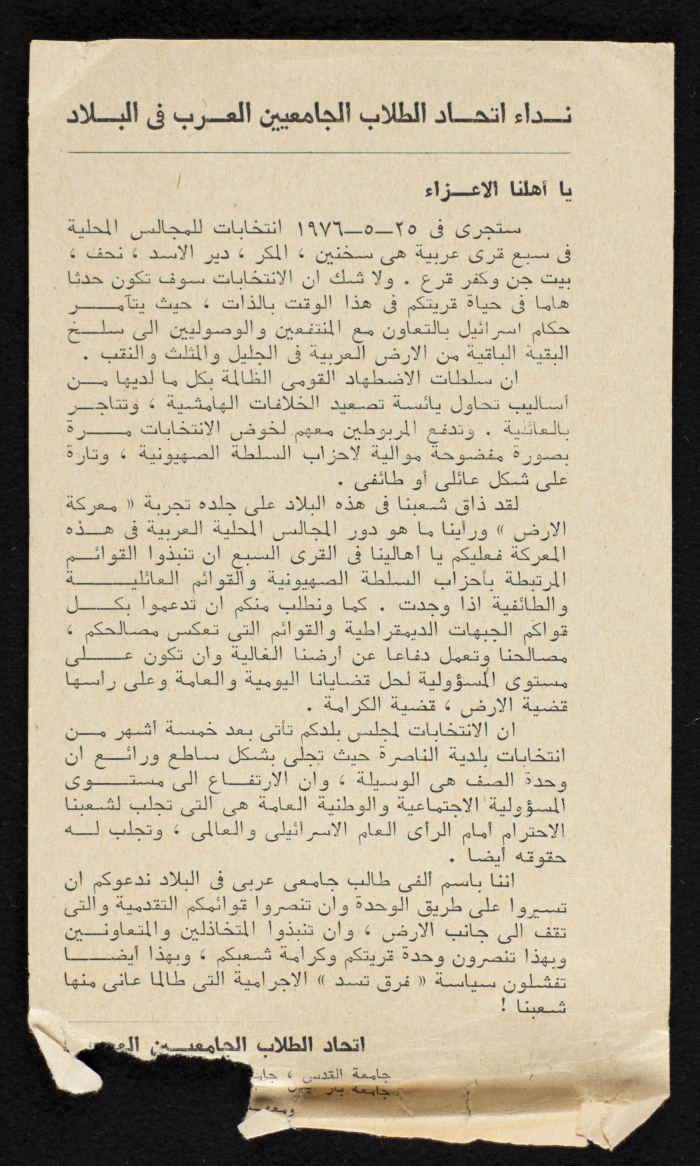 نداء اتحاد الطلاب الجامعيين العرب فى البلاد
يا أهلنا الاعزاء
ستجرى فى ٢٥-٥-١٩٧٦ انتخابات للمجالس المحلية
فى سبع قرى عربية هى سخنين ، المكر ، دير الاسد ، نحف ،
بيت جن وكفر قرع . ولا شك ان الانتخابات سوف تكون حدثا
هاما فى حياة قريتكم فى هذا الوقت بالذات ، حيث يتآمر
حكام اسرائيل بالتعاون مع المنتفعين والوصوليين الى سلخ
البقية الباقية من الارض العربية فى الجليل والمثلث والنقب .
ان سلطات الاضطهاد القومى الظالمة بكل ما لديها من
أساليب تحاول يائسة تصعيد الخلافات الهامشية ، وتتاجر
بالعائلية . وتدفع المربوطين معهم لخوض الانتخابات مرة
بصورة مفضوحة موالية لاحزاب السلطة الصهيونية ، وتارة
على شكل عائلى أو طائفى .
لقد ذاق شعبنا فى هذه البلاد على جلده تجربة « معركة
الارض » ورأينا ما هو دور المجالس المحلية العربية فى هذه
المعركة فعليكم يا أهالينا فى القرى السبع ان تنبذوا القوائم
المرتبطة بأحزاب السلطة الصهيونية والقوائم العائلية
والطائفية اذا وجدت . كما ونطلب منكم ان تدعموا بكل
قواكم الجبهات الديمقراطية والقوائم التى تعكس مصالحكم ،
مصالحنا وتعمل دفاعا عن أرضنا الغالية وان تكون على
مستوى المسؤولية لحل قضايانا اليومية والعامة وعلى رأسها
قضية الارض ، قضية الكرامة .
ان الانتخابات لمجلس بلدكم تأتى بعد خمسة أشهر من
انتخابات بلدية الناصرة حيث تجلى بشكل ساطع ورائع ان
وحدة الصف هى الوسيلة ، وان الارتفاع الى مستوى
المسؤولية الاجتماعية والوطنية العامة هى التى تجلب لشعبنا
الاحترام أمام الرأى العام الاسرائيلى والعالمى ، وتجلب له
حقوقه أيضا .
اننا باسم ألفى طالب جامعى عربى فى البلاد ندعوكم ان
تسيروا على طريق الوحدة وان تنصروا قوائمكم التقدمية والتى
تقف الى جانب الارض ، وان تنبذوا المتخاذلين والمتعاونين
وبهذا تنصرون وحدة قريتكم وكرامة شعبكم ، وبهذا أيضا
تفشلون سياسة « فرق تسد » الاجرامية التى طالما عانى منها
شعبنا !
اتحاد الطلاب الجامعيين
جامعة القدس ،
جامعة بار